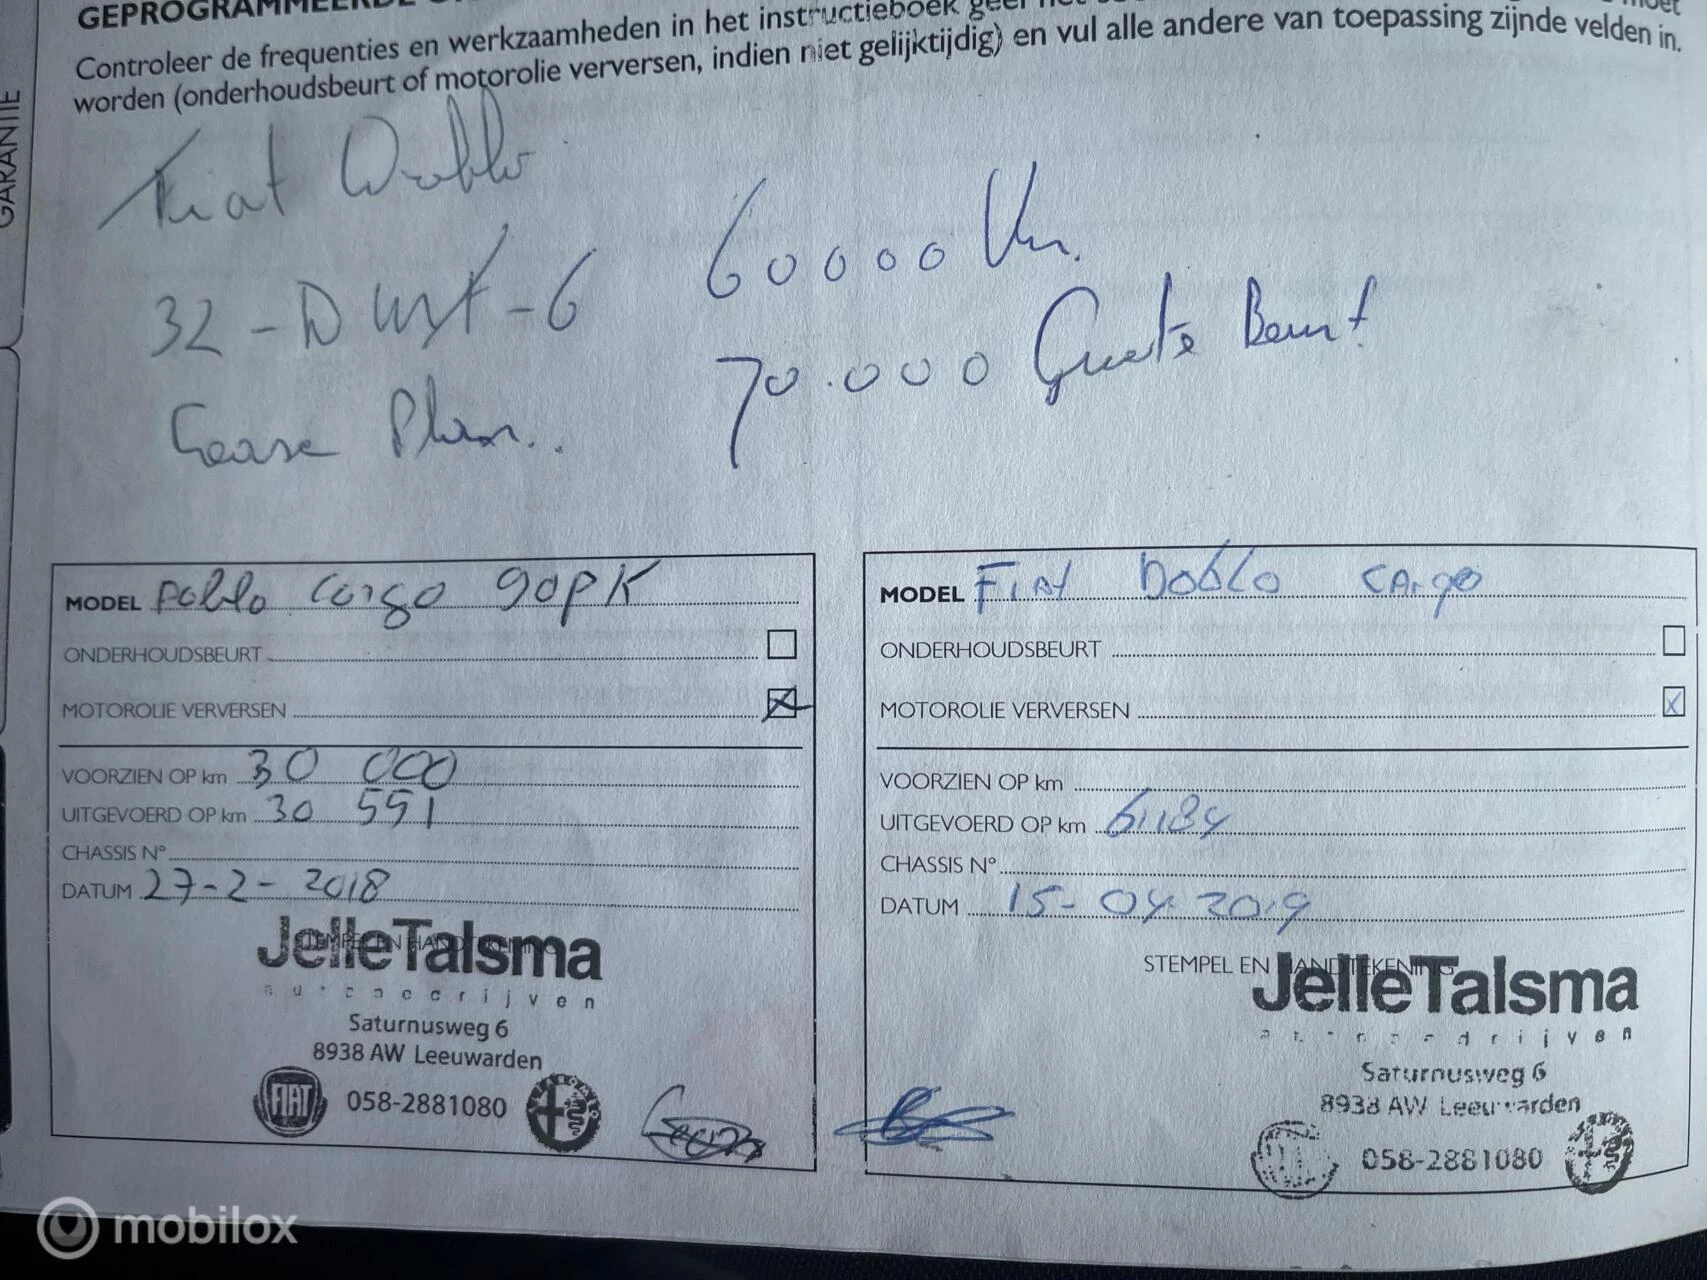 GEPROGRAMMEERDE
Controleer de frequenties en werkzaamheden in het instructieboek
worden (onderhoudsbeurt of motorolie verversen, indien niet gelijktijdig) en vul alle andere van toepassing zijnde velden in.
GARANTIE
Fiat Doblo
32 - - 6
60000 Km.
70.000 Groote Beurt
Lease Plan..
MODEL Doblo Cargo 90PK
ONDERHOUDSBEURT
MOTOROLIE VERVERSEN
VOORZIEN OP km 30 000
UITGEVOERD OP km 30 551
CHASSIS N°
DATUM 27-2-2018
STEMPEL EN HANDTEKENING
JelleTalsma
autobedrijven
Saturnusweg 6
8938 AW Leeuwarden
FIAT
058-2881080
MODEL FIAT Doblo CArgo
ONDERHOUDSBEURT
MOTOROLIE VERVERSEN
VOORZIEN OP km
UITGEVOERD OP km 61184
CHASSIS N°
DATUM 15-04-2019
STEMPEL EN HANDTEKENING
JelleTalsma
autobedrijven
Saturnusweg 6
8938 AW Leeuwarden
058-2881080
mobilox